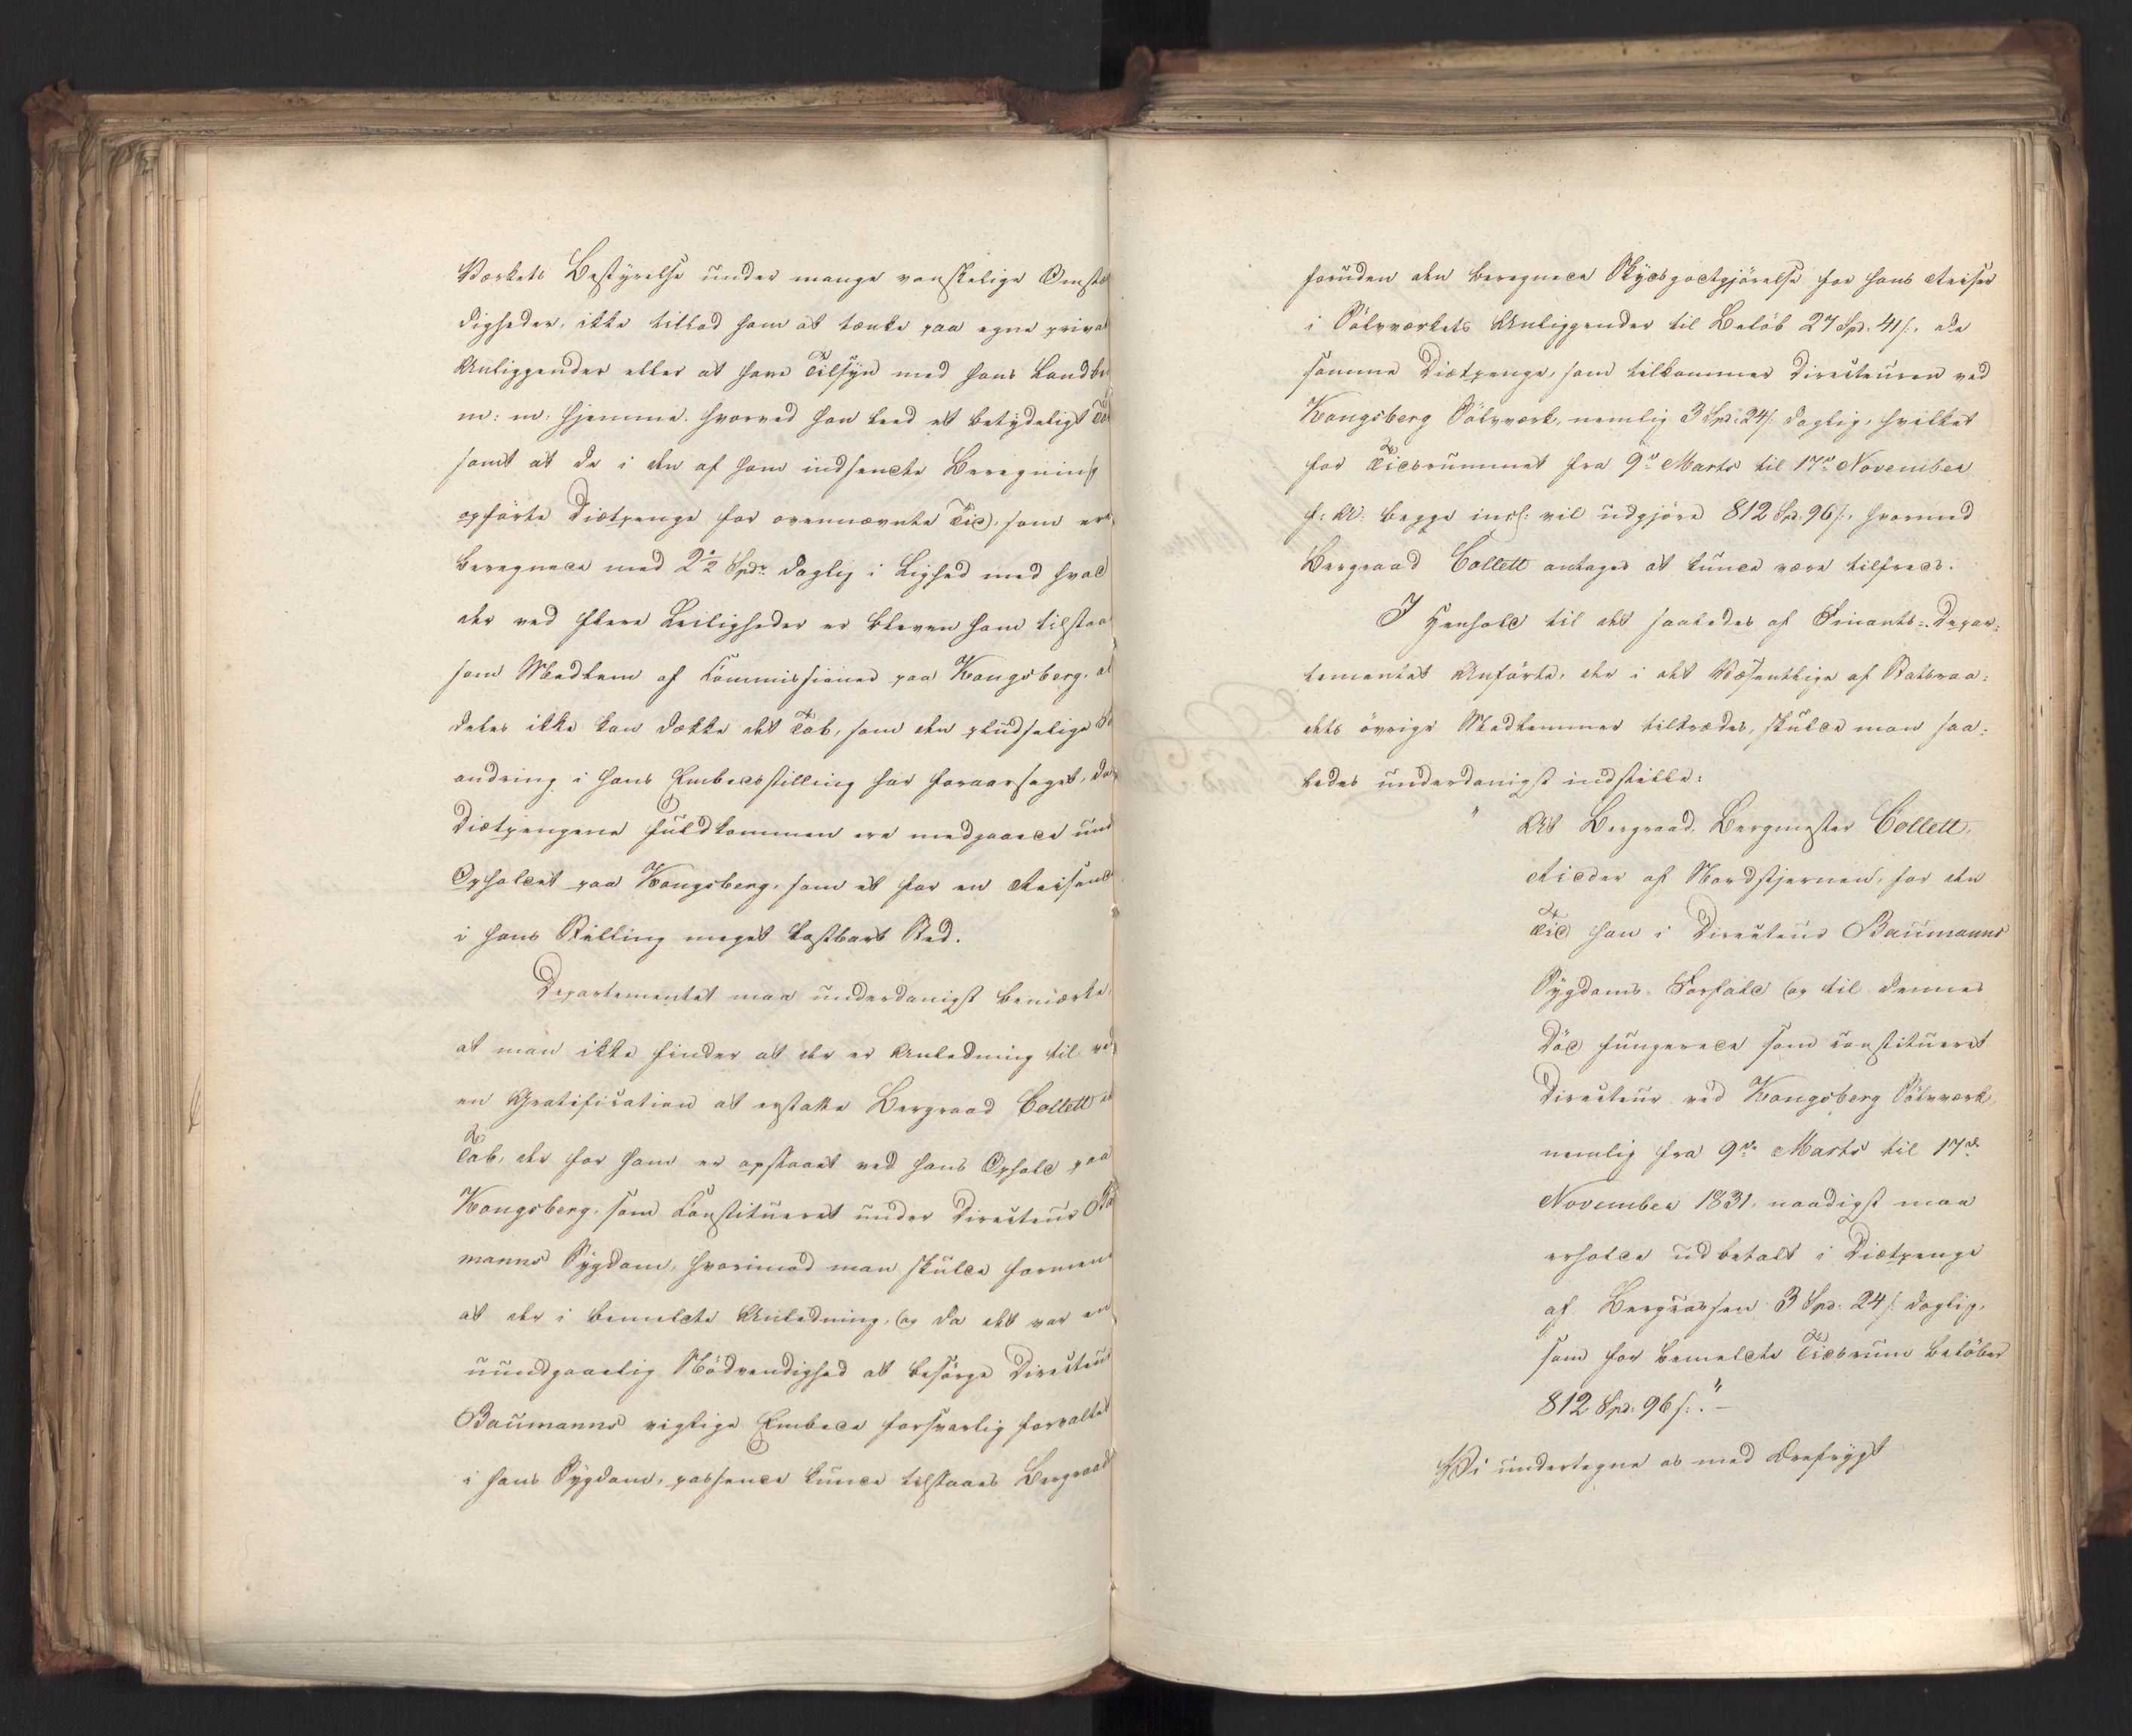 Værkets Bestyrelse under mange vanskelige Omstæ
digheder, ikke tillod ham at tænke paa egne privat
Anliggender eller at have Tilsyn med hans Landbr
m: m: hjemme, hvorved han leed et betydeligt Ta
samt at de i den af ham indsendte Beregning
opførte Diætpenge for ovennævnte Tid, som ere
beregnede med 2½ Spdr daglig i Lighed med hvad
der ved flere Leiligheder er bleven ham tilstaa
som Medlem af Commissioner paa Kongsberg, al
deles ikke kan dække det Tab, som den pludselige
andring i hans Embedsstilling har foraarsaget, da
Diætpengene fuldkommen ere medgaaede und
Opholdet paa Kongsberg, som et for en Reisend
i hans Stilling meget kostbart Sted.
Departementet maa underdanigst bemærke,
at man ikke finder at der er Anledning til ved
en Gratification at erstatte Bergraad Collett et
Tab, der for ham er opstaaet ved hans Ophold paa
Kongsberg, som Constitueret under Directeur Ba
manns Sygdom, hvorimod man skulde formene
at der i bemeldte Anledning, og da det var en
uundgaaelig Nødvendighed at besørge Directeur
Baumanns vigtige Embede forsvarlig forvaltet
i hans Sygdom, passende kunde tilstaaes Bergraad
foruden den beregnede Skydsgodtgjørelse for hans Reiser
i Sølvværkets Anliggender til Beløb 27 Spd. 41 s:, de
samme Diætpenge, som tilkommer Directeuren ved
Kongsberg Sølvværk, nemlig 3 Spd: 24 s: daglig, hvilket
for Tidsrummet fra 9de Marts til 17de November
f: A: begge incl: vil udgjøre 812 Spd. 96 s:, hvormed
Bergraad Collett antages at kunde være tilfreds.
I Henhold til det saaledes af Finants-Depar-
tementet Anførte, der i det Væsentlige af Statsraa-
dets øvrige Medlemmer tiltrædes, skulde man saa-
ledes underdanigst indstille:
" At Bergraad, Bergmester Collett,
Ridder af Nordstjernen, for den
Tid han i Directeur Baumanns
Sygdoms Forfald og til dennes
Død fungerede som constitueret
Directeur ved Kongsberg Sølvværk,
nemlig fra 9de Marts til 17de
November 1831, naadigst maa
erholde udbetalt i Diætpenge
af Bergcassen 3 Spd. 24 s: daglig,
som for bemeldte Tidsrum beløber
812 Spd. 96 s:."
Vi undertegne os med Ærefrygt